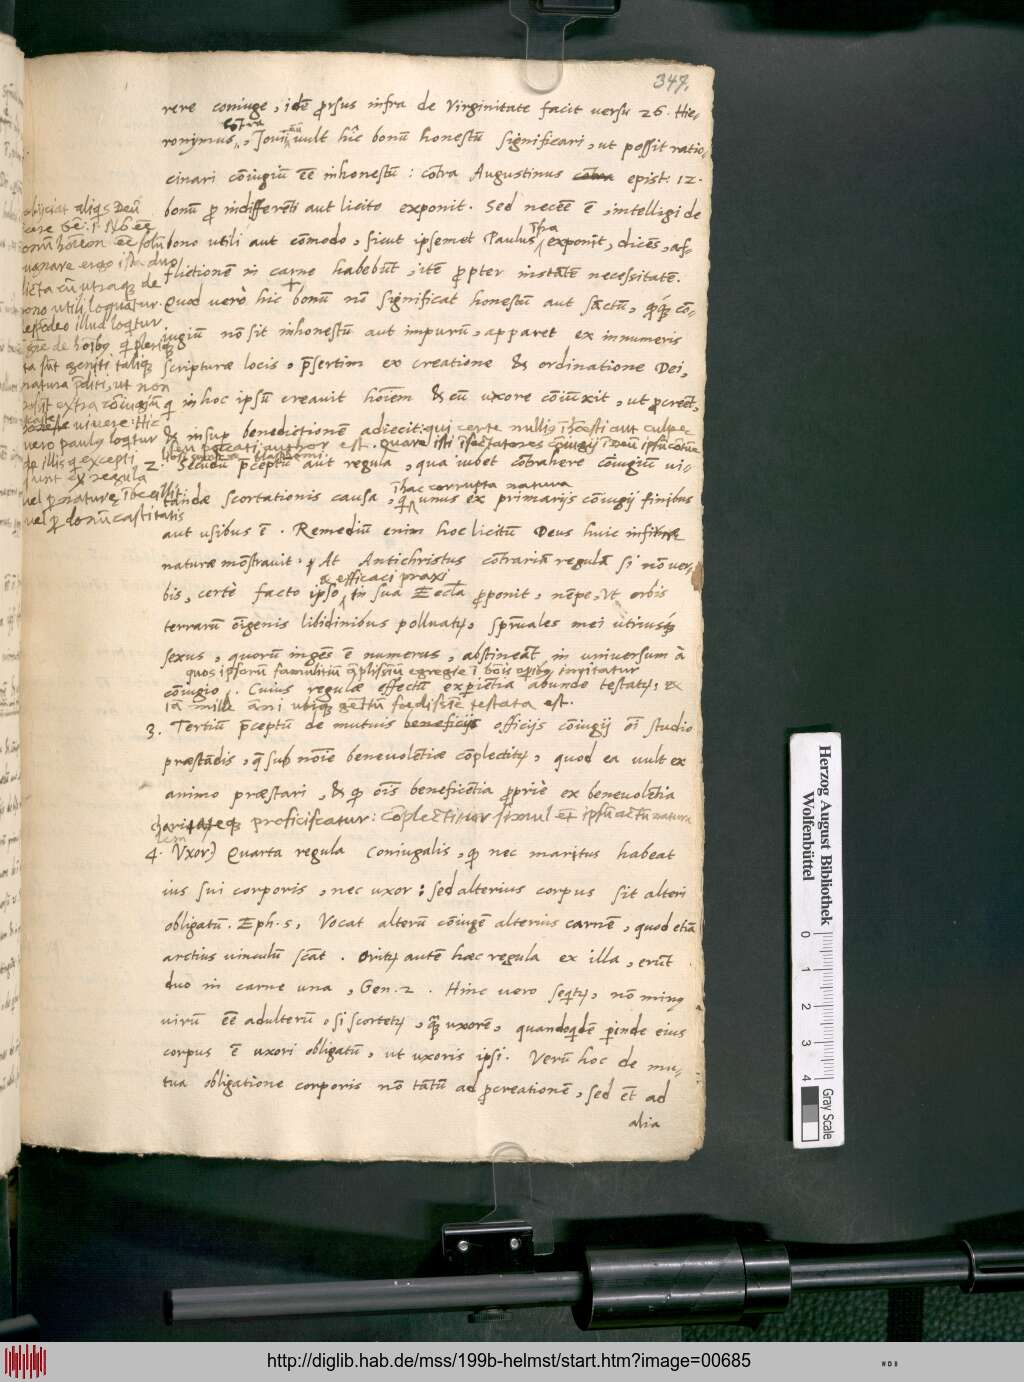 347.
rere coniuge, idē prorsus infra de Virginitate facit versu 26. Hie-
cōtra
ronymus, Jovin vult hic bonū honestū significari, ut possit ratio-
cinari cōiugiū eē inhonestū: cōtra Augustinus cōtra epist: 12.
bonū p indifferēti aut licito exponit. Sed necēe ē, intelligi de
bono utili aut cōmodo, sicut ipsemet Paulus infra exponit, dicēs, af-
flictionē in carne habebūt, itē propter instātē necessitatē.
Quod verò hic bonū nō significat honestū aut sāctū, cō-
iugiū nō sit inhonestū aut impurū, apparet ex innumeris
scripturæ locis, p̄sertim ex creatione & ordinatione Dei,
q in hoc ipsū creavit hoīem & eū uxore cōiūxit, ut procreēt,
& insup benedictionē adiecit: qui certe nullis īhonesti aut culpæ
est. Quare isti
2. Secūdū p̄ceptū aut regula, qua iubet cōtrahere cōiugiū vi-
ī hac corrupta natura
tandæ scortationis causa, q unus ex primarijs cōiugij finibus
aut usibus ē. Remediū enim hoc licitū Deus huic infirmæ
naturæ mōstravit. At Antichristus cōtrariā regulā si nō ver-
& efficaci praxi
bis, certè facto ipso in sua Eccla proponit, nēpe, ut orbis
terrarū oīgenis libidinibus polluatur, spūales mei utriusq
sexus, quorū ingēs ē numerus, abstineāt in universum à
quos ipsorū famulitiū egregie ī bōis opibus imitatur
cōiugio. Cuius regulæ effectū expiētia abunde testatur, ex
iā mille āni ubiq gētiū fœdissīe testata est.
3. Tertiū p̄ceptū de mutuis beneficijs officijs cōiugij oī studio
præstādis, q sub nōīe benevolētiæ cōplectitur, quod ea vult ex
animo præstari, & q oīs beneficētia propriè ex benevolētia
charitateq proficiscatur: cōplectitur simul et ipsū actū naturæ
4. Uxor) Quarta regula coniugalis, q nec maritus habeat
ius sui corporis, nec uxor: sed alterius corpus sit alteri
obligatū. Eph. 5, Vocat alterū cōiugē alterius carnē, quod etiā
arctius vinculū sōat. Oritur autē hæc regula ex illa, erūt
duo in carne una, Gen. 2. Hinc vero seqitur, nō minus
virū eē adulterū, si scortetur, q uxorē, quandoqidē pinde eius
corpus ē uxori obligatū, ut uxoris ipsi. Verū hoc de mu-
tua obligatione corporis nō tātū ad procreationē, sed et ad
alia
obijciat aliqs Deū
Gē: 1. Nō eē
bonū hoīem eē solū
pugnare ergo ista duo
cū utraq de
bono utili loquatur.
ideo illud loqitur
de hoibus
ta sūt geniti taliq
natura p̄diti, ut non
possīt extra cōiugiū
caste
vivere: Hic
vero paulus loqitur
de illis q excepti
sunt ex regula
vel p naturæ
vel p donū castitatis
Herzog August Bibliothek
Wolfenbüttel
0 1 2 3 4
Gray Scale
http://diglib.hab.de/mss/199b-helmst/start.htm?image=00685
WDB